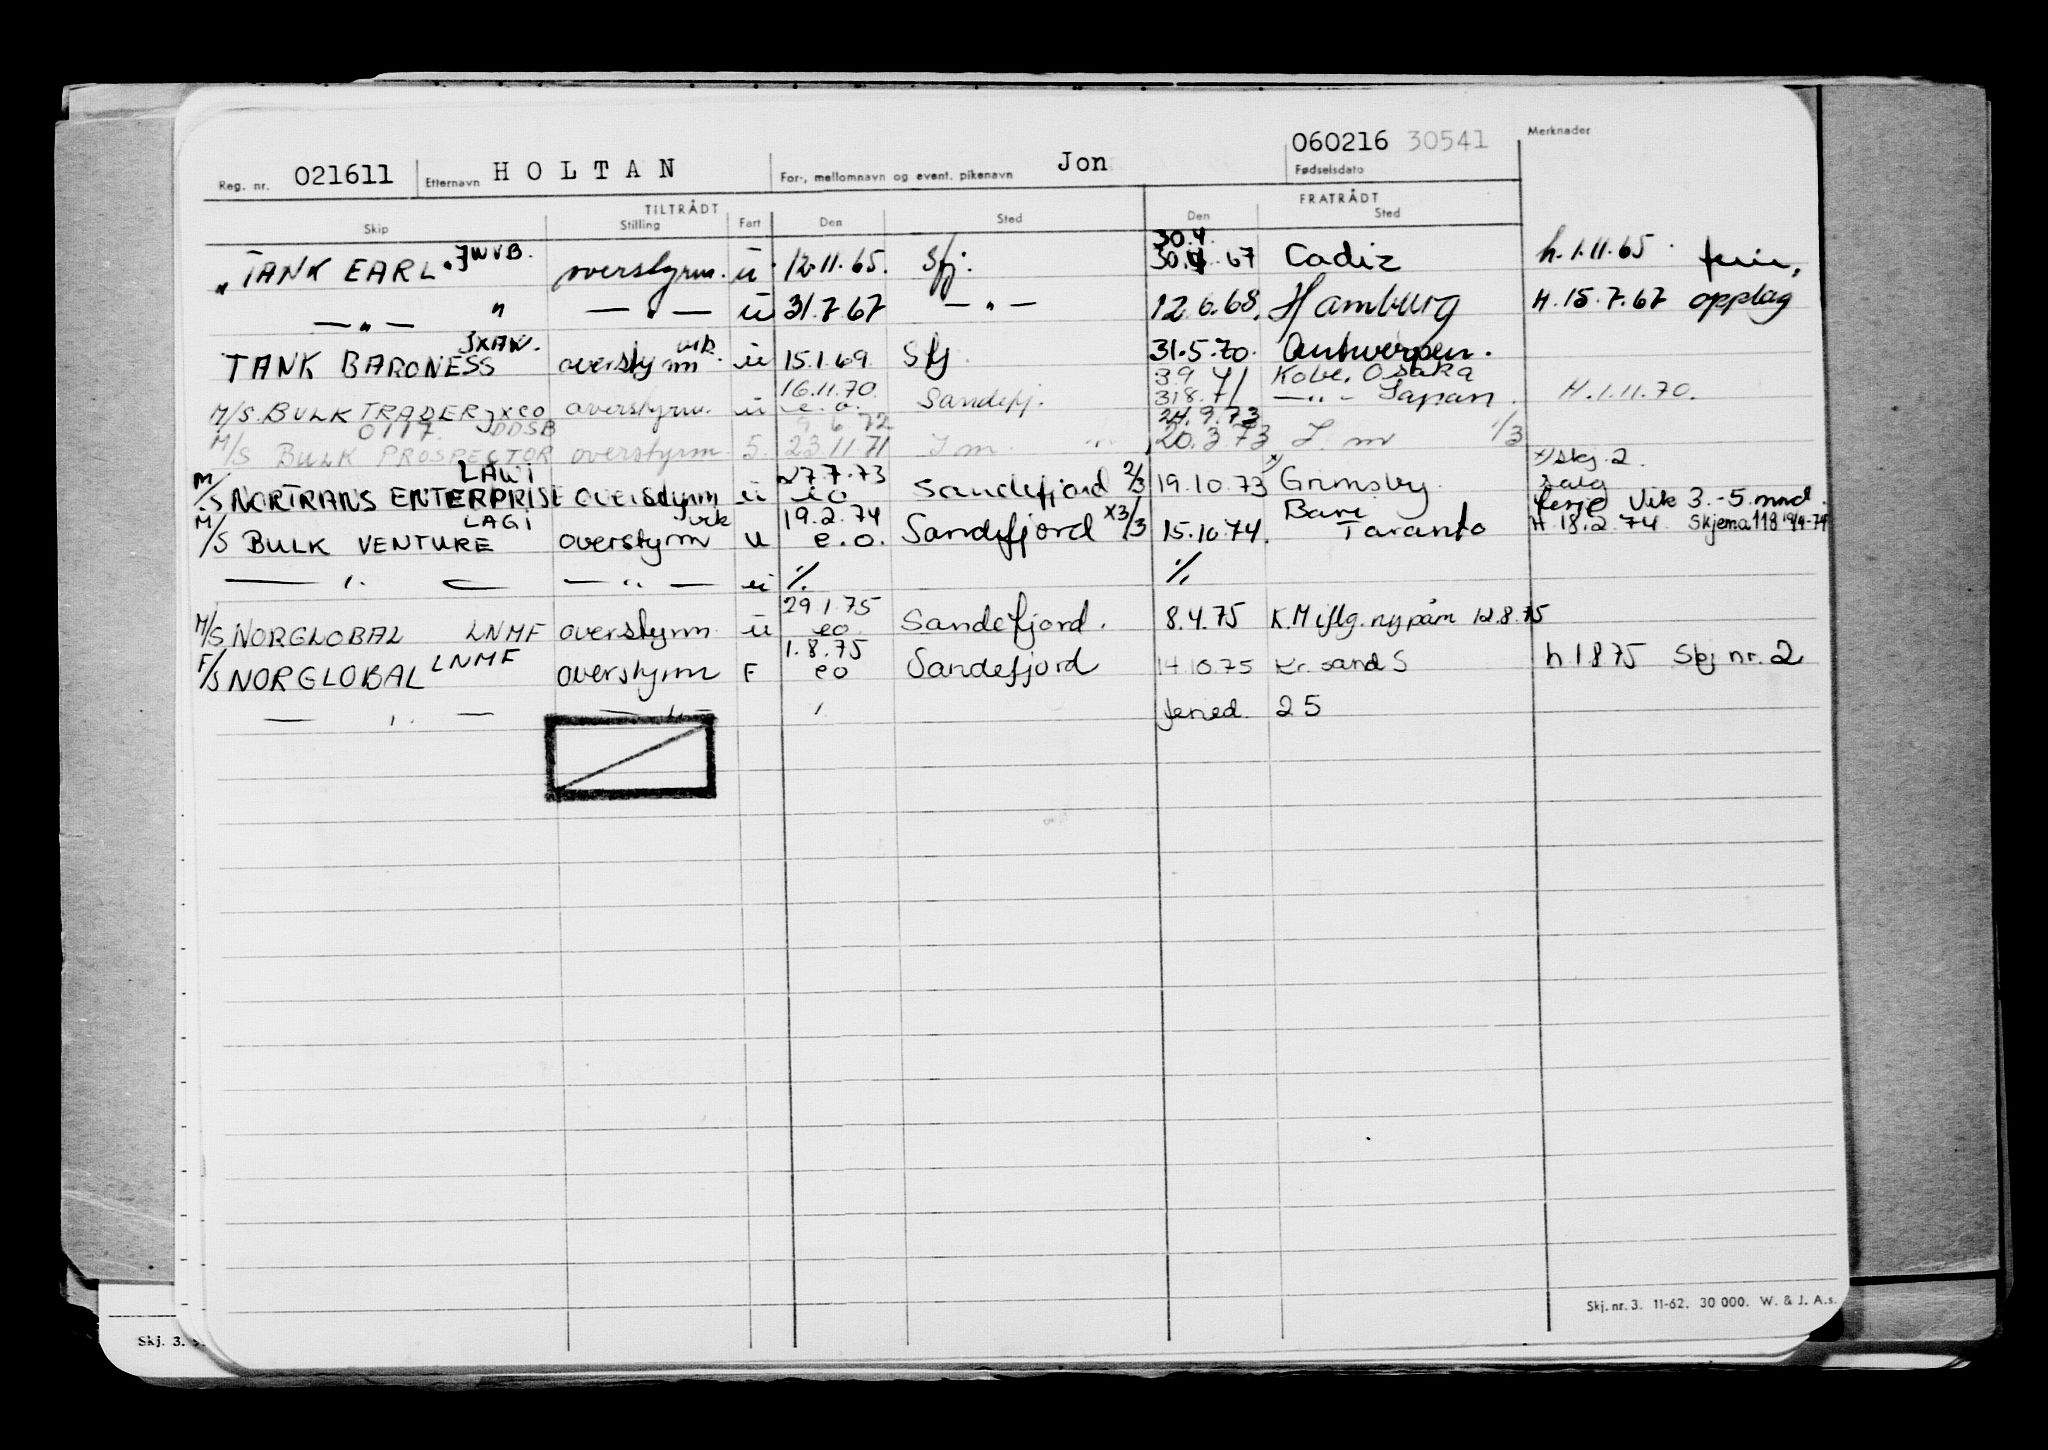 Reg. nr. 021611 Etternavn HOLTAN For-, mellomnavn og event. pikenavn Jon 060216 30541 Fødselsdato Merknader
TILTRÅDT FRATRÅDT
Skip Stilling Fart Den Sted Den Sted
30.4.
"TANK EARL" JWVB. overstyrm. u 12.11.65. Sfj. 30.4.67 Cadiz h.1.11.65. ferie,
— " — " — " — u 31.7.67 — " — 12.6.68. Hamburg H. 15.7.67 opplag
TANK BARONESS JXAW. overstyrm vik. u 15.1.69. Sfj. 31.5.70. Antwerpen.
16.11.70. 3.9.71 Kobe, Osaka
M/S. BULK TRADER JXCO overstyrm. u e.o. Sandefj. 31.8.71 — " — Japan. H.1.11.70.
0117. DDSB 9.6.72 24.9.73
M/S BULK PROSPECTOR overstyrm S. 23.11.71 I m. " 20.3.73 I. m 1/3
LAWI 27.7.73 x) skj. 2.
M/S NORTRANS ENTERPRISE overstyrm u eo Sandefjord 2/3 19.10.73 x) Grimsby. salg
ferje Vik 3.-5. mnd.
LAGI vik 19.2.74 Bari
M/S BULK VENTURE overstyrm u e.o. Sandefjord x3/3 15.10.74. Taranto H. 18.2.74. Skjema 118 19/9-74
— " — — " — u %. %
29.1.75
M/S NORGLOBAL LNMF overstyrm u eo Sandefjord. 8.4.75 K.M iflg. ny påm 12.8.75
1.8.75
F/S NORGLOBAL LNMF overstyrm F eo Sandefjord 14.10.75 Kr. sand S h 1875 Skj nr. 2.
— " — — " — " 25
Skj. nr. 3. 11-62. 30 000. W. & J. A.s.
Skj. 3.